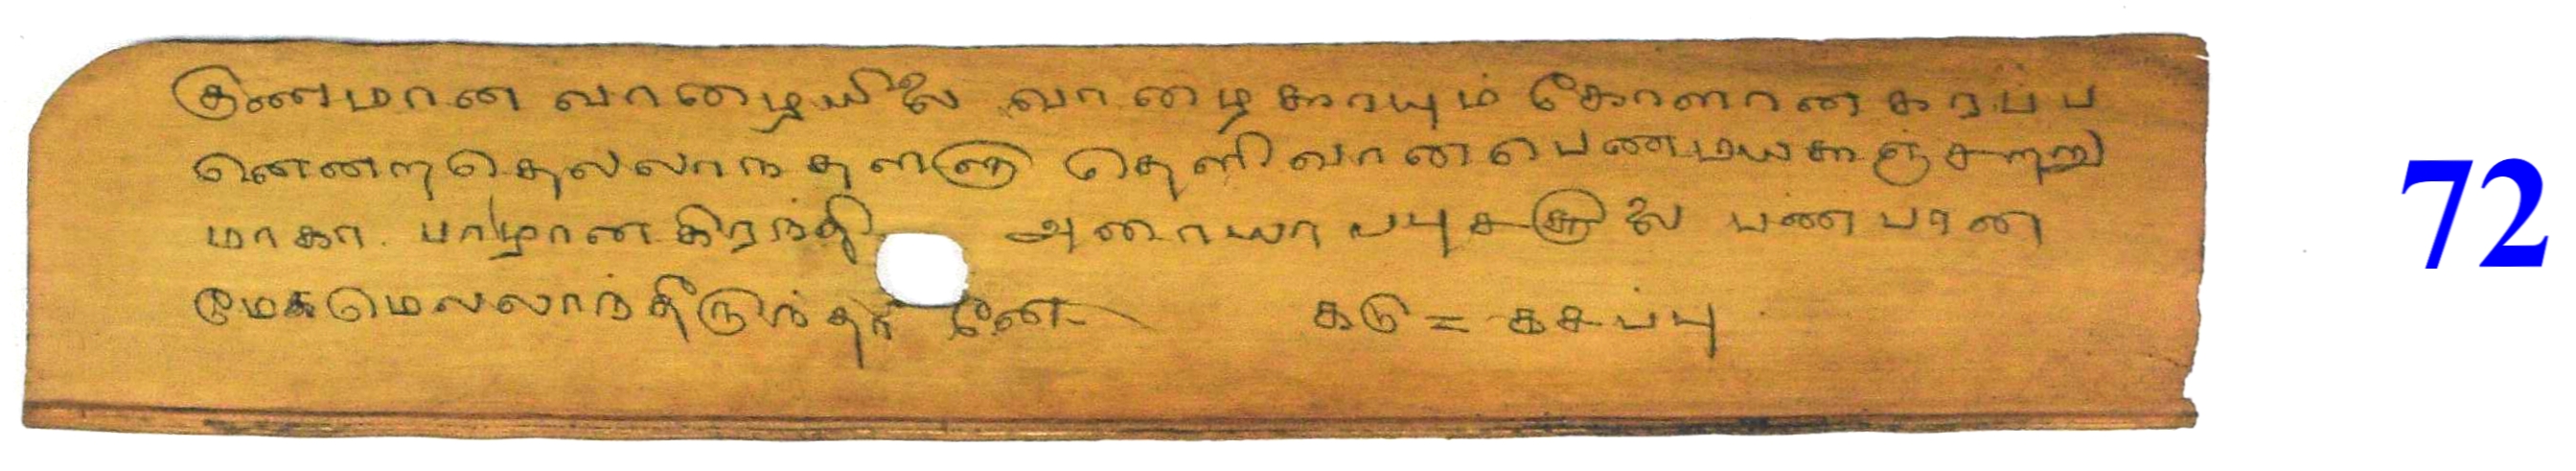 குணமான வாழையிலை வாழைகாயும் கோளான கரப்ப
னென்றதெல்லாந தள்ளு தெளிவான பெண்மயகஞ்சற்று
மாகா பாழான கிரந்தி அனாயாபபுசசூலை பணபான
மேகமெலலாந்தீருந்தானே - கடு = கசப்பு
72